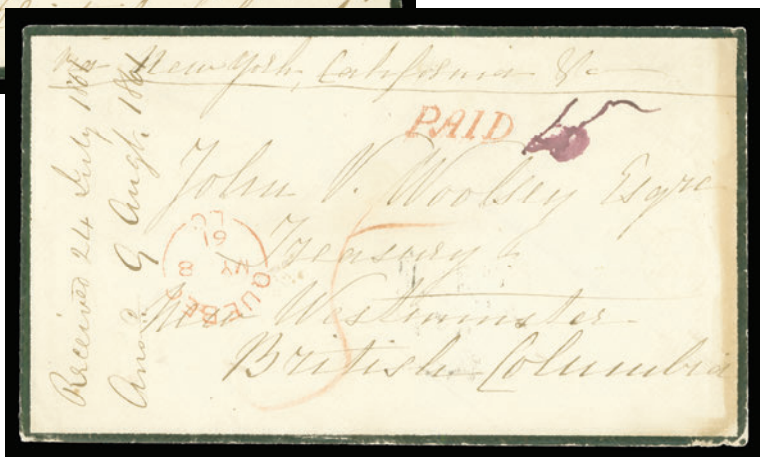 via New York, California &c
PAID 15
John V. Woolsey Esqre
Treasury
New Westminster
British Columbia
5
QUEBEC L.C.
MY 8
61
Received 24 July 1861
Ansd. 9 Augt. 1861